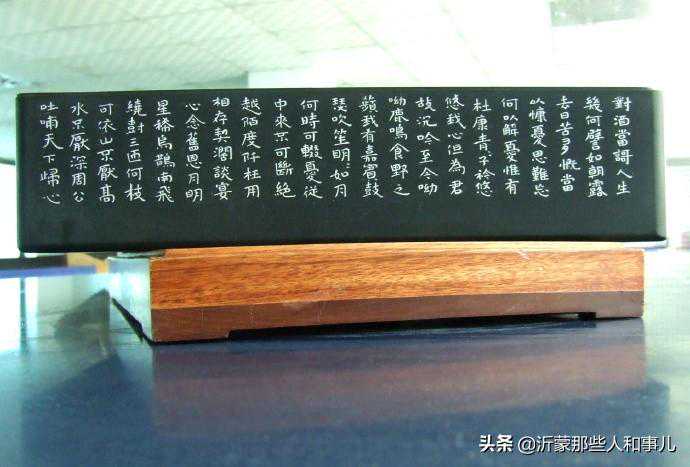 對酒當謌人生
幾何譬如朝露
去日苦多慨當
以慷憂思難忘
何以解憂惟有
杜康青〻子衿悠
悠我心但為君
故沉吟至今呦
呦鹿鳴食野之
蘋我有嘉賓鼓
瑟吹笙明〻如月
何時可輟憂從
中來不可斷絕
越陌度阡枉用
相存契濶談宴
心念舊恩月明
星稀烏鵲南飛
繞樹三匝何枝
可依山不厭高
水不厭深周公
吐哺天下歸心
头条 @沂蒙那些人和事儿